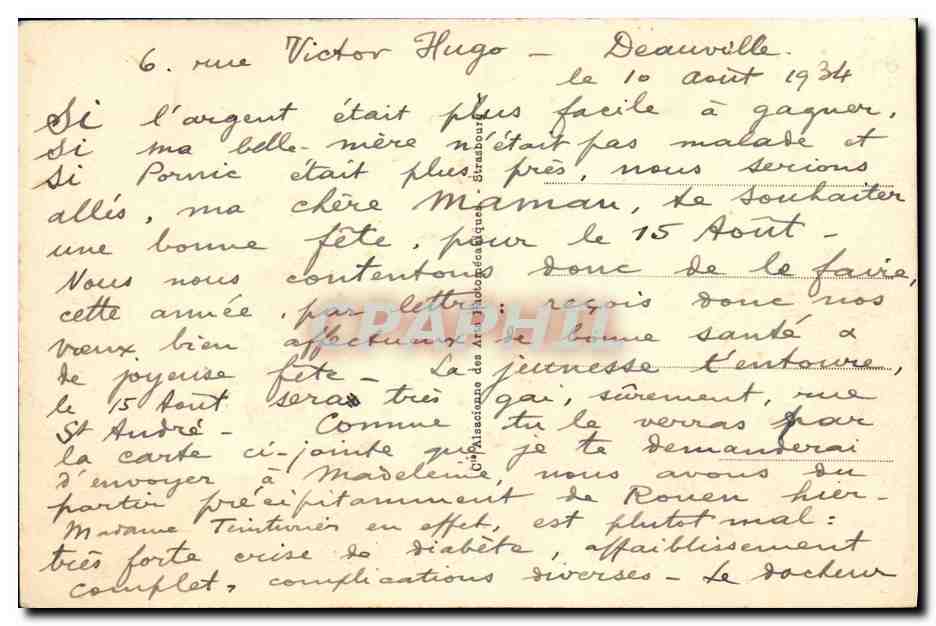 6. rue Victor Hugo - Deauville.
le 10 août 1934
Si l'argent était plus facile à gagner,
si ma belle-mère n'était pas malade et
si Pornic était plus près, nous serions
allés, ma chère Maman, te souhaiter
une bonne fête, pour le 15 Août -
Nous nous contentons donc de le faire,
cette année, par lettre : reçois donc nos
vœux bien affectueux de bonne santé &
de joyeuse fête - La jeunesse t'entoure,
le 15 Août sera très gai, sûrement, rue
St André - Comme tu le verras par
la carte ci-jointe que je te demanderai
d'envoyer à Madeleine, nous avons du
partir précipitamment de Rouen hier -
Madame en effet, est plutot mal :
très forte crise de diabète, affaiblissement
complet, complications diverses - Le docteur
Cie Alsacienne des Arts photomécaniques - Strasbourg
CPAPHIL